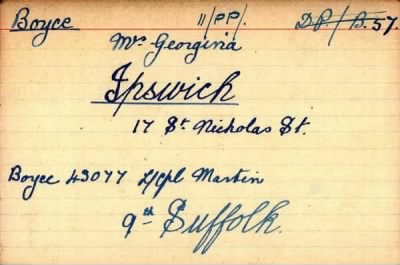 Boyce 11/PP/. D.P./B.57.
Mrs Georgina
Ipswich
17 St. Nicholas St.
Boyce 43077 L/Cpl Martin
9th Suffolk.